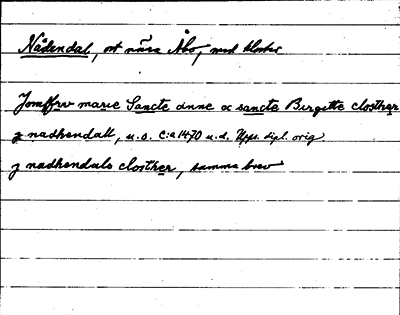 Nådendal, ort nära Åbo, med kloster
Jomffrv marie Sancte anne oc sancte Birgitte closther
j nadhendall, u.o. c:a 1470 u.d. Upps. dipl. orig.
j nadhendals closther, samma brev